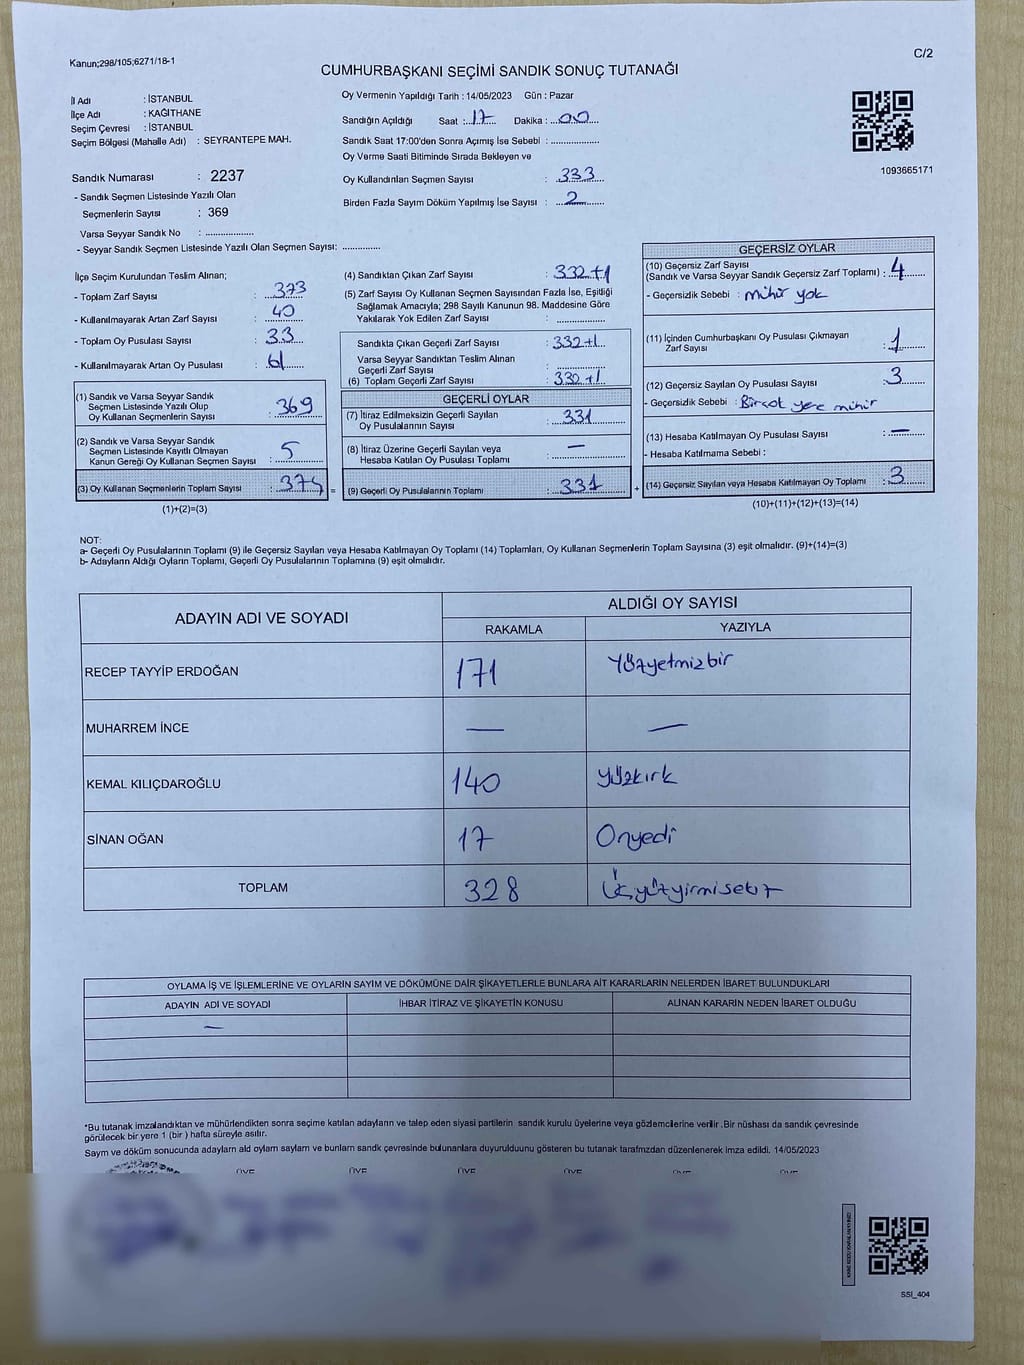 Kanun;298/105;6271/18-1
C/2
CUMHURBAŞKANI SEÇİMİ SANDIK SONUÇ TUTANAĞI
İl Adı : İSTANBUL
İlçe Adı : KAĞITHANE
Seçim Çevresi : İSTANBUL
Seçim Bölgesi (Mahalle Adı) : SEYRANTEPE MAH.
Oy Vermenin Yapıldığı Tarih : 14/05/2023 Gün : Pazar
Sandığın Açıldığı Saat : 17 Dakika : 00
Sandık Saat 17:00'den Sonra Açımış İse Sebebi :
Oy Verme Saati Bitiminde Sırada Bekleyen ve
Oy Kullandırılan Seçmen Sayısı : 333
Birden Fazla Sayım Döküm Yapılmış İse Sayısı : 2
1093665171
Sandık Numarası : 2237
- Sandık Seçmen Listesinde Yazılı Olan
Seçmenlerin Sayısı : 369
Varsa Seyyar Sandık No :
- Seyyar Sandık Seçmen Listesinde Yazılı Olan Seçmen Sayısı:
İlçe Seçim Kurulundan Teslim Alınan;
- Toplam Zarf Sayısı : 373
- Kullanılmayarak Artan Zarf Sayısı : 40
- Toplam Oy Pusulası Sayısı : 33
- Kullanılmayarak Artan Oy Pusulası : 61
(1) Sandık ve Varsa Seyyar Sandık
Seçmen Listesinde Yazılı Olup
Oy Kullanan Seçmenlerin Sayısı : 369
(2) Sandık ve Varsa Seyyar Sandık
Seçmen Listesinde Kayıtlı Olmayan
Kanun Gereği Oy Kullanan Seçmen Sayısı : 5
(3) Oy Kullanan Seçmenlerin Toplam Sayısı : 374 =
(1)+(2)=(3)
(4) Sandıktan Çıkan Zarf Sayısı : 332+1
(5) Zarf Sayısı Oy Kullanan Seçmen Sayısından Fazla İse, Eşitliği
Sağlamak Amacıyla; 298 Sayılı Kanunun 98. Maddesine Göre
Yakılarak Yok Edilen Zarf Sayısı :
Sandıkta Çıkan Geçerli Zarf Sayısı : 332+1
Varsa Seyyar Sandıktan Teslim Alınan
Geçerli Zarf Sayısı :
(6) Toplam Geçerli Zarf Sayısı : 332+1
GEÇERLİ OYLAR
(7) İtiraz Edilmeksizin Geçerli Sayılan
Oy Pusulalarının Sayısı : 331
(8) İtiraz Üzerine Geçerli Sayılan veya
Hesaba Katılan Oy Pusulası Toplamı : —
(9) Geçerli Oy Pusulalarının Toplamı : 331 +
GEÇERSİZ OYLAR
(10) Geçersiz Zarf Sayısı
(Sandık ve Varsa Seyyar Sandık Geçersiz Zarf Toplamı) : 4
- Geçersizlik Sebebi : mühür yok
(11) İçinden Cumhurbaşkanı Oy Pusulası Çıkmayan
Zarf Sayısı : 1
(12) Geçersiz Sayılan Oy Pusulası Sayısı : 3
- Geçersizlik Sebebi : Birçok yere mühür
(13) Hesaba Katılmayan Oy Pusulası Sayısı : —
- Hesaba Katılmama Sebebi :
(14) Geçersiz Sayılan veya Hesaba Katılmayan Oy Toplamı : 3
(10)+(11)+(12)+(13)=(14)
NOT:
a- Geçerli Oy Pusulalarının Toplamı (9) ile Geçersiz Sayılan veya Hesaba Katılmayan Oy Toplamı (14) Toplamları, Oy Kullanan Seçmenlerin Toplam Sayısına (3) eşit olmalıdır. (9)+(14)=(3)
b- Adayların Aldığı Oyların Toplamı, Geçerli Oy Pusulalarının Toplamına (9) eşit olmalıdır.
ADAYIN ADI VE SOYADI
ALDIĞI OY SAYISI
RAKAMLA YAZIYLA
RECEP TAYYİP ERDOĞAN 171 Yüzyetmizbir
MUHARREM İNCE — —
KEMAL KILIÇDAROĞLU 140 yüzkırk
SİNAN OĞAN 17 Onyedi
TOPLAM 328 Üçyüzyirmisekiz
OYLAMA İŞ VE İŞLEMLERİNE VE OYLARIN SAYIM VE DÖKÜMÜNE DAİR ŞİKAYETLERLE BUNLARA AİT KARARLARIN NELERDEN İBARET BULUNDUKLARI
ADAYIN ADI VE SOYADI İHBAR İTİRAZ VE ŞİKAYETİN KONUSU ALINAN KARARIN NEDEN İBARET OLDUĞU
—
*Bu tutanak imzalandıktan ve mühürlendikten sonra seçime katılan adayların ve talep eden siyasi partilerin sandık kurulu üyelerine veya gözlemcilerine verilir .Bir nüshası da sandık çevresinde
görülecek bir yere 1 (bir ) hafta süreyle asılır.
Sayım ve döküm sonucunda adayların aldı oyların sayları ve bunların sandk çevresinde bulunanlara duyurulduunu gösteren bu tutanak tarafımzdan düzenlenerek imza edildi. 14/05/2023
ÜYE ÜYE ÜYE ÜYE ÜYE ÜYE
SSİ_404